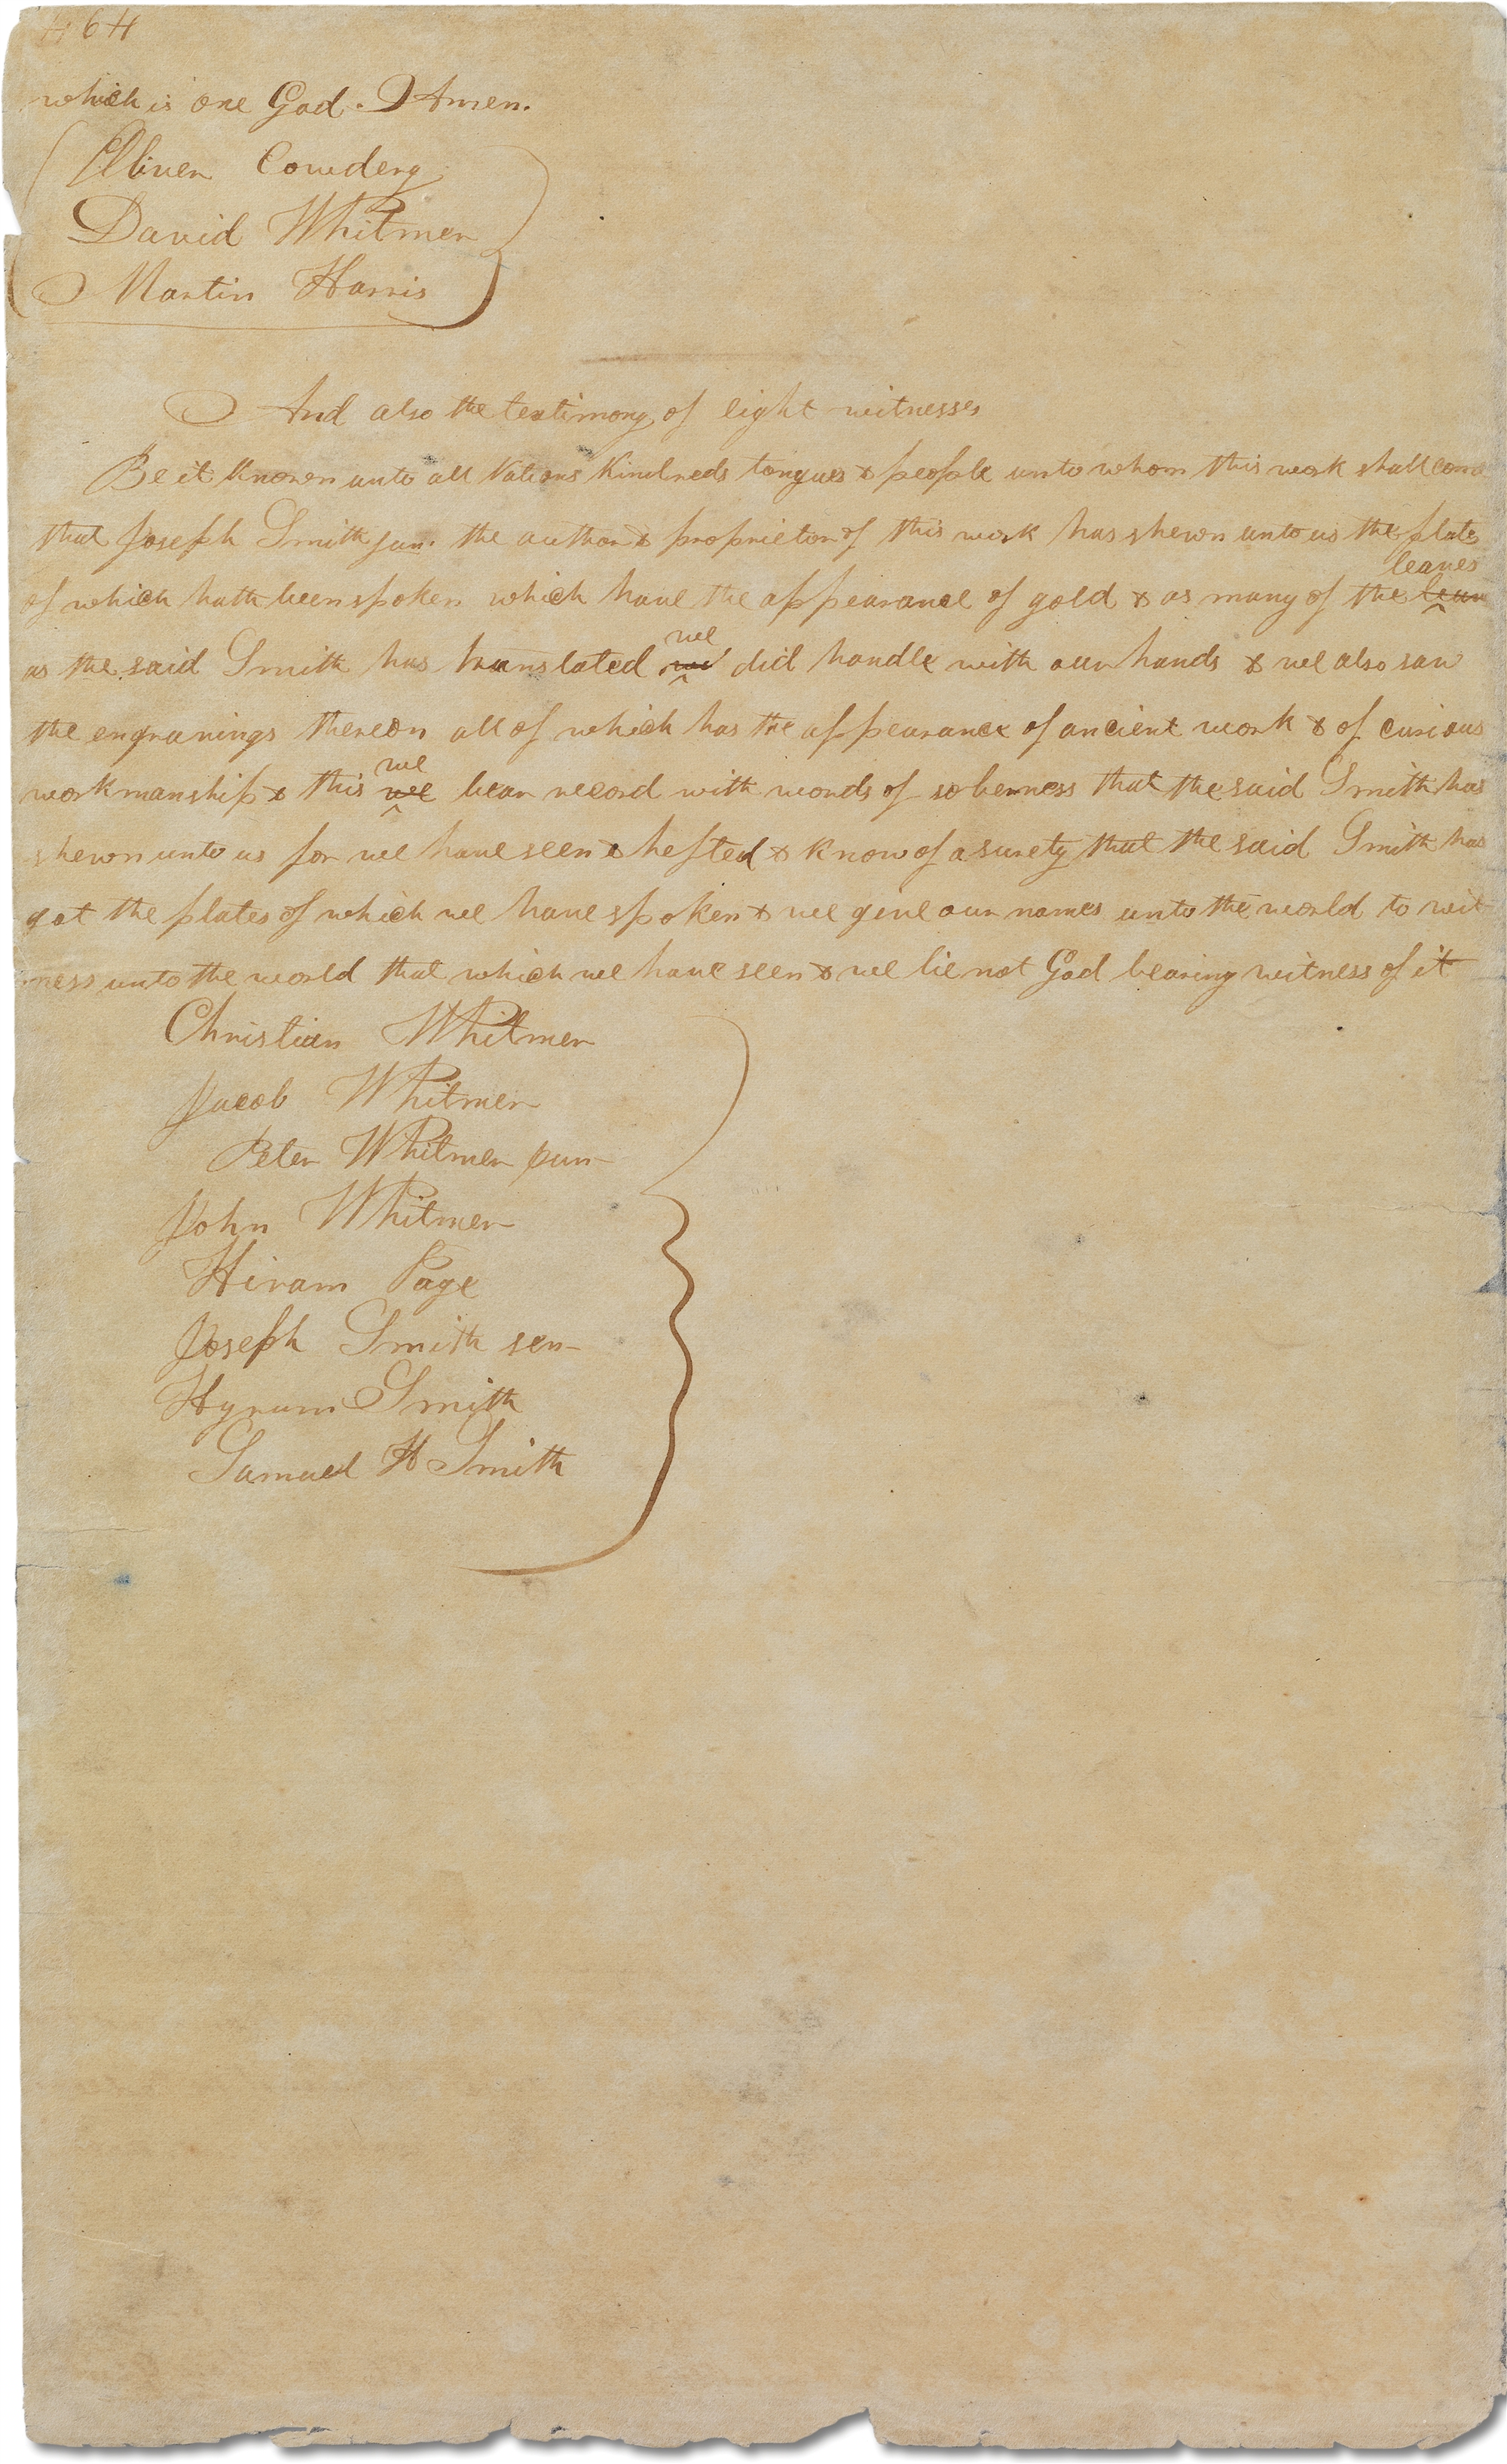 464
which is one God. Amen.
Oliver Cowdery
David Whitmer
Martin Harris
And also the testimony of eight witnesses
Be it known unto all Nations Kindreds tongues & people unto whom this work shall come
that Joseph Smith jun. the author & proprietor of this work has shewn unto us the plates
leaves
of which hath been spoken which have the appearance of gold & as many of the
we
as the said Smith has translated we did handle with our hands & we also saw
the engravings thereon all of which has the appearance of ancient work & of curious
we
workmanship & this we bear record with words of soberness that the said Smith has
shewn unto us for we have seen & hefted & know of a surety that the said Smith has
got the plates of which we have spoken & we give our names unto the world to wit
ness unto the world that which we have seen & we lie not God bearing witness of it
Christian Whitmer
Jacob Whitmer
Peter Whitmer jun
John Whitmer
Hiram Page
Joseph Smith sen
Hyrum Smith
Samuel H Smith